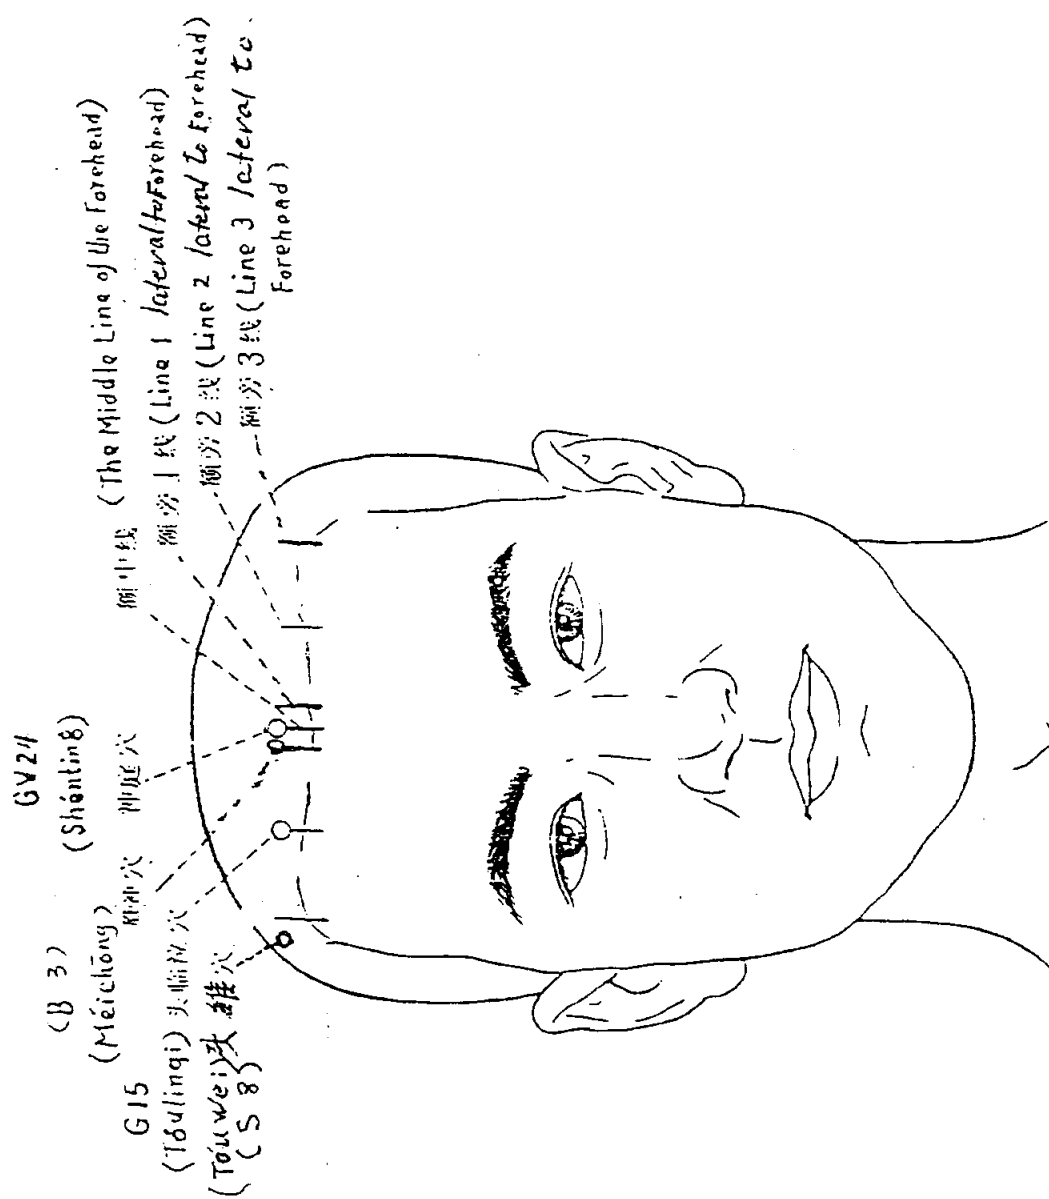 GV24
(Shéntíng)
神庭穴
(B 3)
(Méichōng) 眉冲穴
G15
(Tóulínqì) 头临泣穴
(Tóuwéi) 头維穴
(S 8)
额中线 (The Middle Line of the Forehead)
额旁1线 (Line 1 lateral to Forehead)
额旁2线 (Line 2 lateral to Forehead)
额旁3线 (Line 3 lateral to
Forehead)